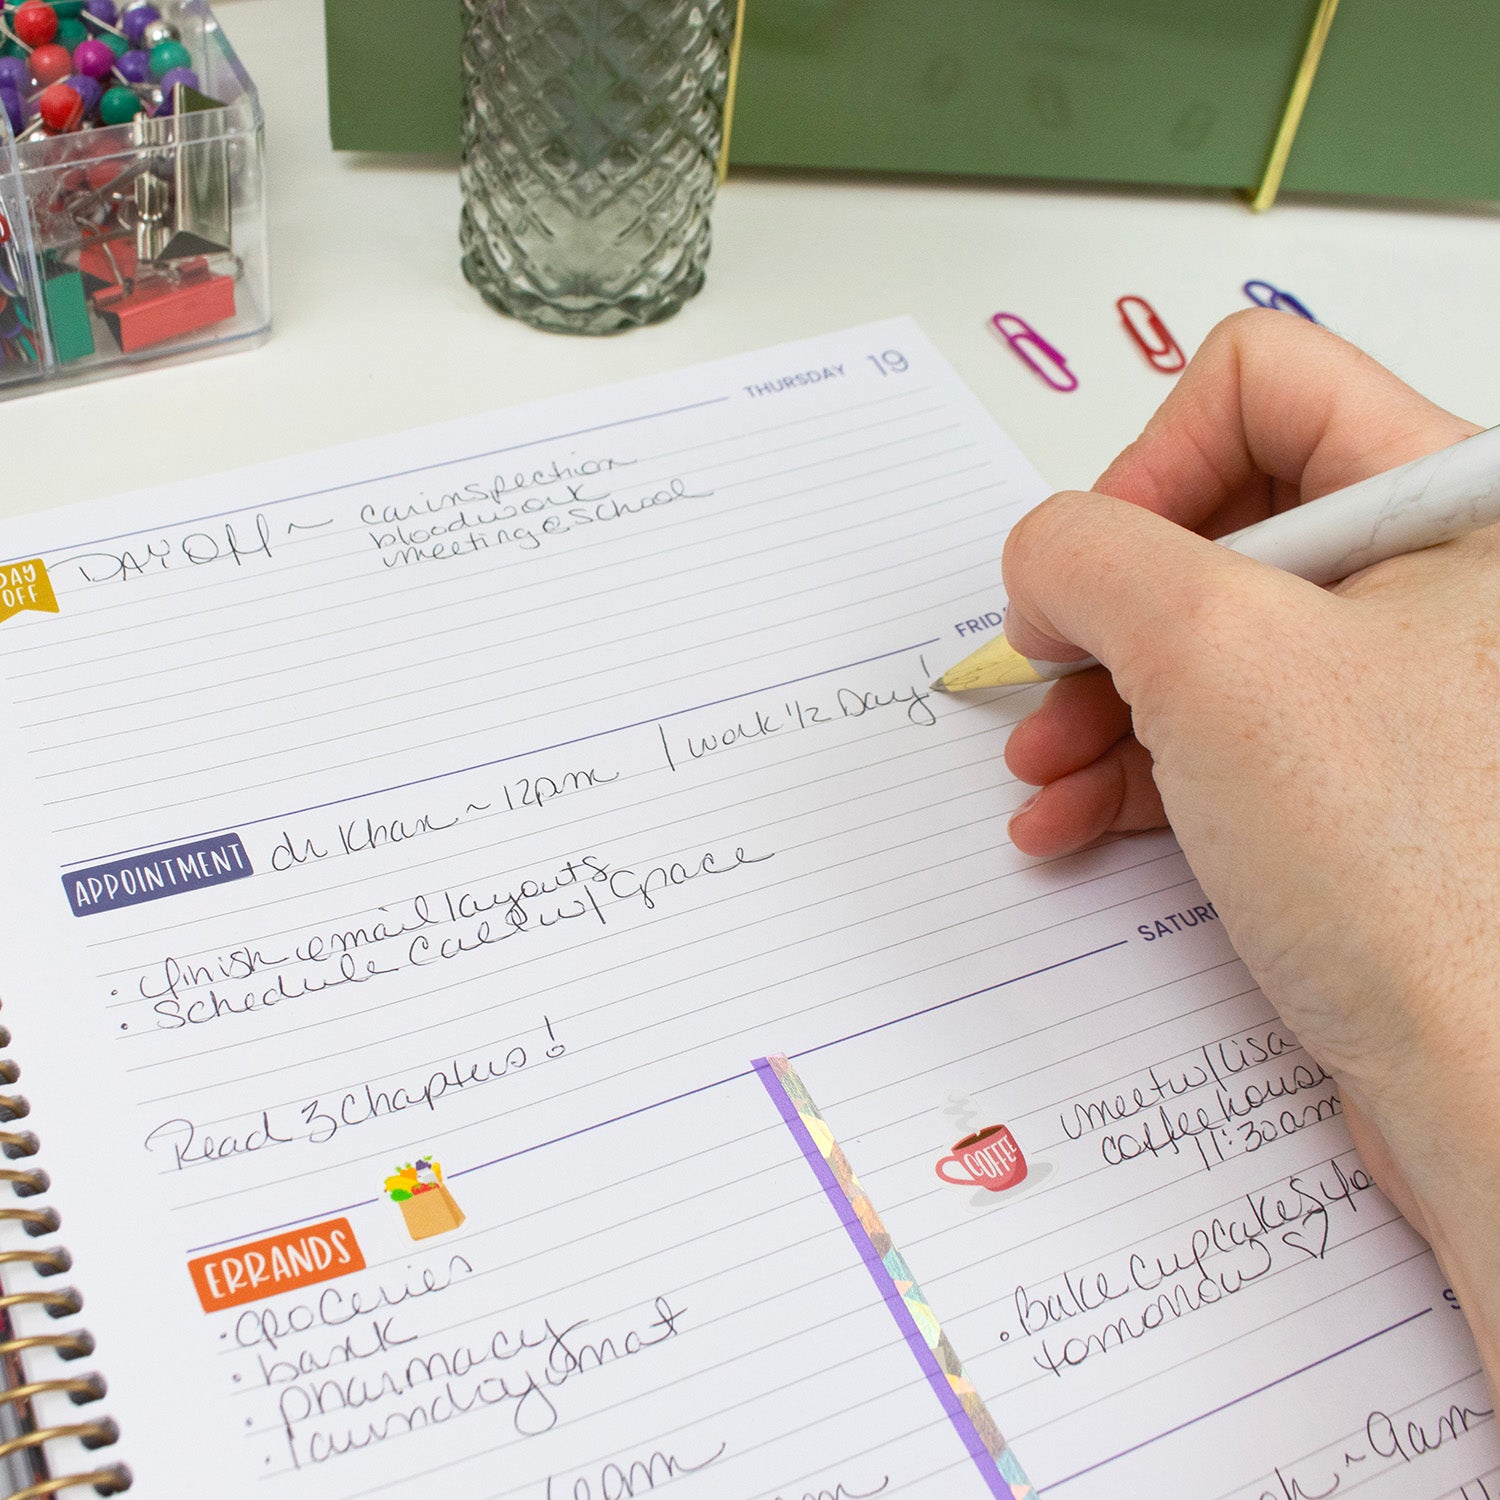 THURSDAY 19
DAY OFF
DAY OFF ~ car inspection
bloodwork
meeting @ school
FRID
APPOINTMENT
dr Khan ~ 12pm / work 1/2 Day!
• finish email layouts
• Schedule Call w/ Grace
Read 3 Chapters!
SATUR
ERRANDS
• groceries
• bank
• pharmacy
• laundry mat
COFFEE
meet w/ lisa
coffee house
11:30am
• Bake Cupcakes 4
tomorrow ♡
S
~ 9am